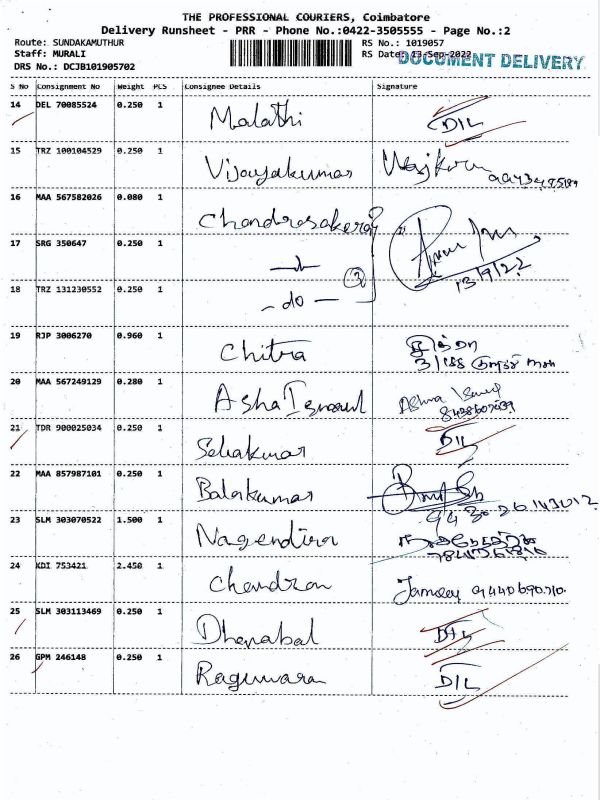 THE PROFESSIONAL COURIERS, Coimbatore
Delivery Runsheet - PRR - Phone No.:0422-3505555 - Page No.:2
Route: SUNDAKAMUTHUR RS No.: 1019057
Staff: MURALI RS Date: 13-Sep-2022 DOCUMENT DELIVERY
DRS No.: DCJB101905702
S No Consignment No Weight PCS Consignee Details Signature
14 DEL 70085524 0.250 1 Malathi D/L
15 TRZ 100104529 0.250 1 Vijayakumar
16 MAA 567582026 0.080 1 Chandrasakeran
17 SRG 350647 0.250 1 13/9/22
18 TRZ 131230552 0.250 1 - do - 3
19 RJP 3006270 0.960 1 Chitra
20 MAA 567249129 0.280 1 Asha
21 TDR 900025034 0.250 1 D/L
22 MAA 857987101 0.250 1 Balakumar
23 SLM 303070522 1.500 1
24 KDI 753421 2.450 1 Chandran
25 SLM 303113469 0.250 1 Dhanabal D/L
26 GPM 246148 0.250 1 D/L